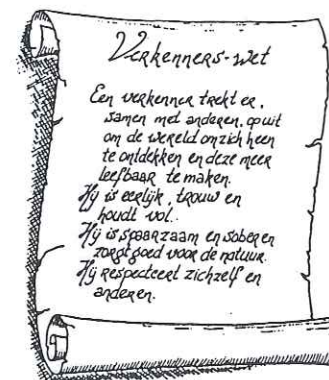 Verkenners-wet
Een verkenner trekt er,
samen met anderen, op uit
om de wereld om zich heen
te ontdekken en deze meer
leefbaar te maken.
Hij is eerlijk, trouw en
houdt vol.
Hij is spaarzaam en sober en
zorgt goed voor de natuur.
Hij respecteert zichzelf en
anderen.